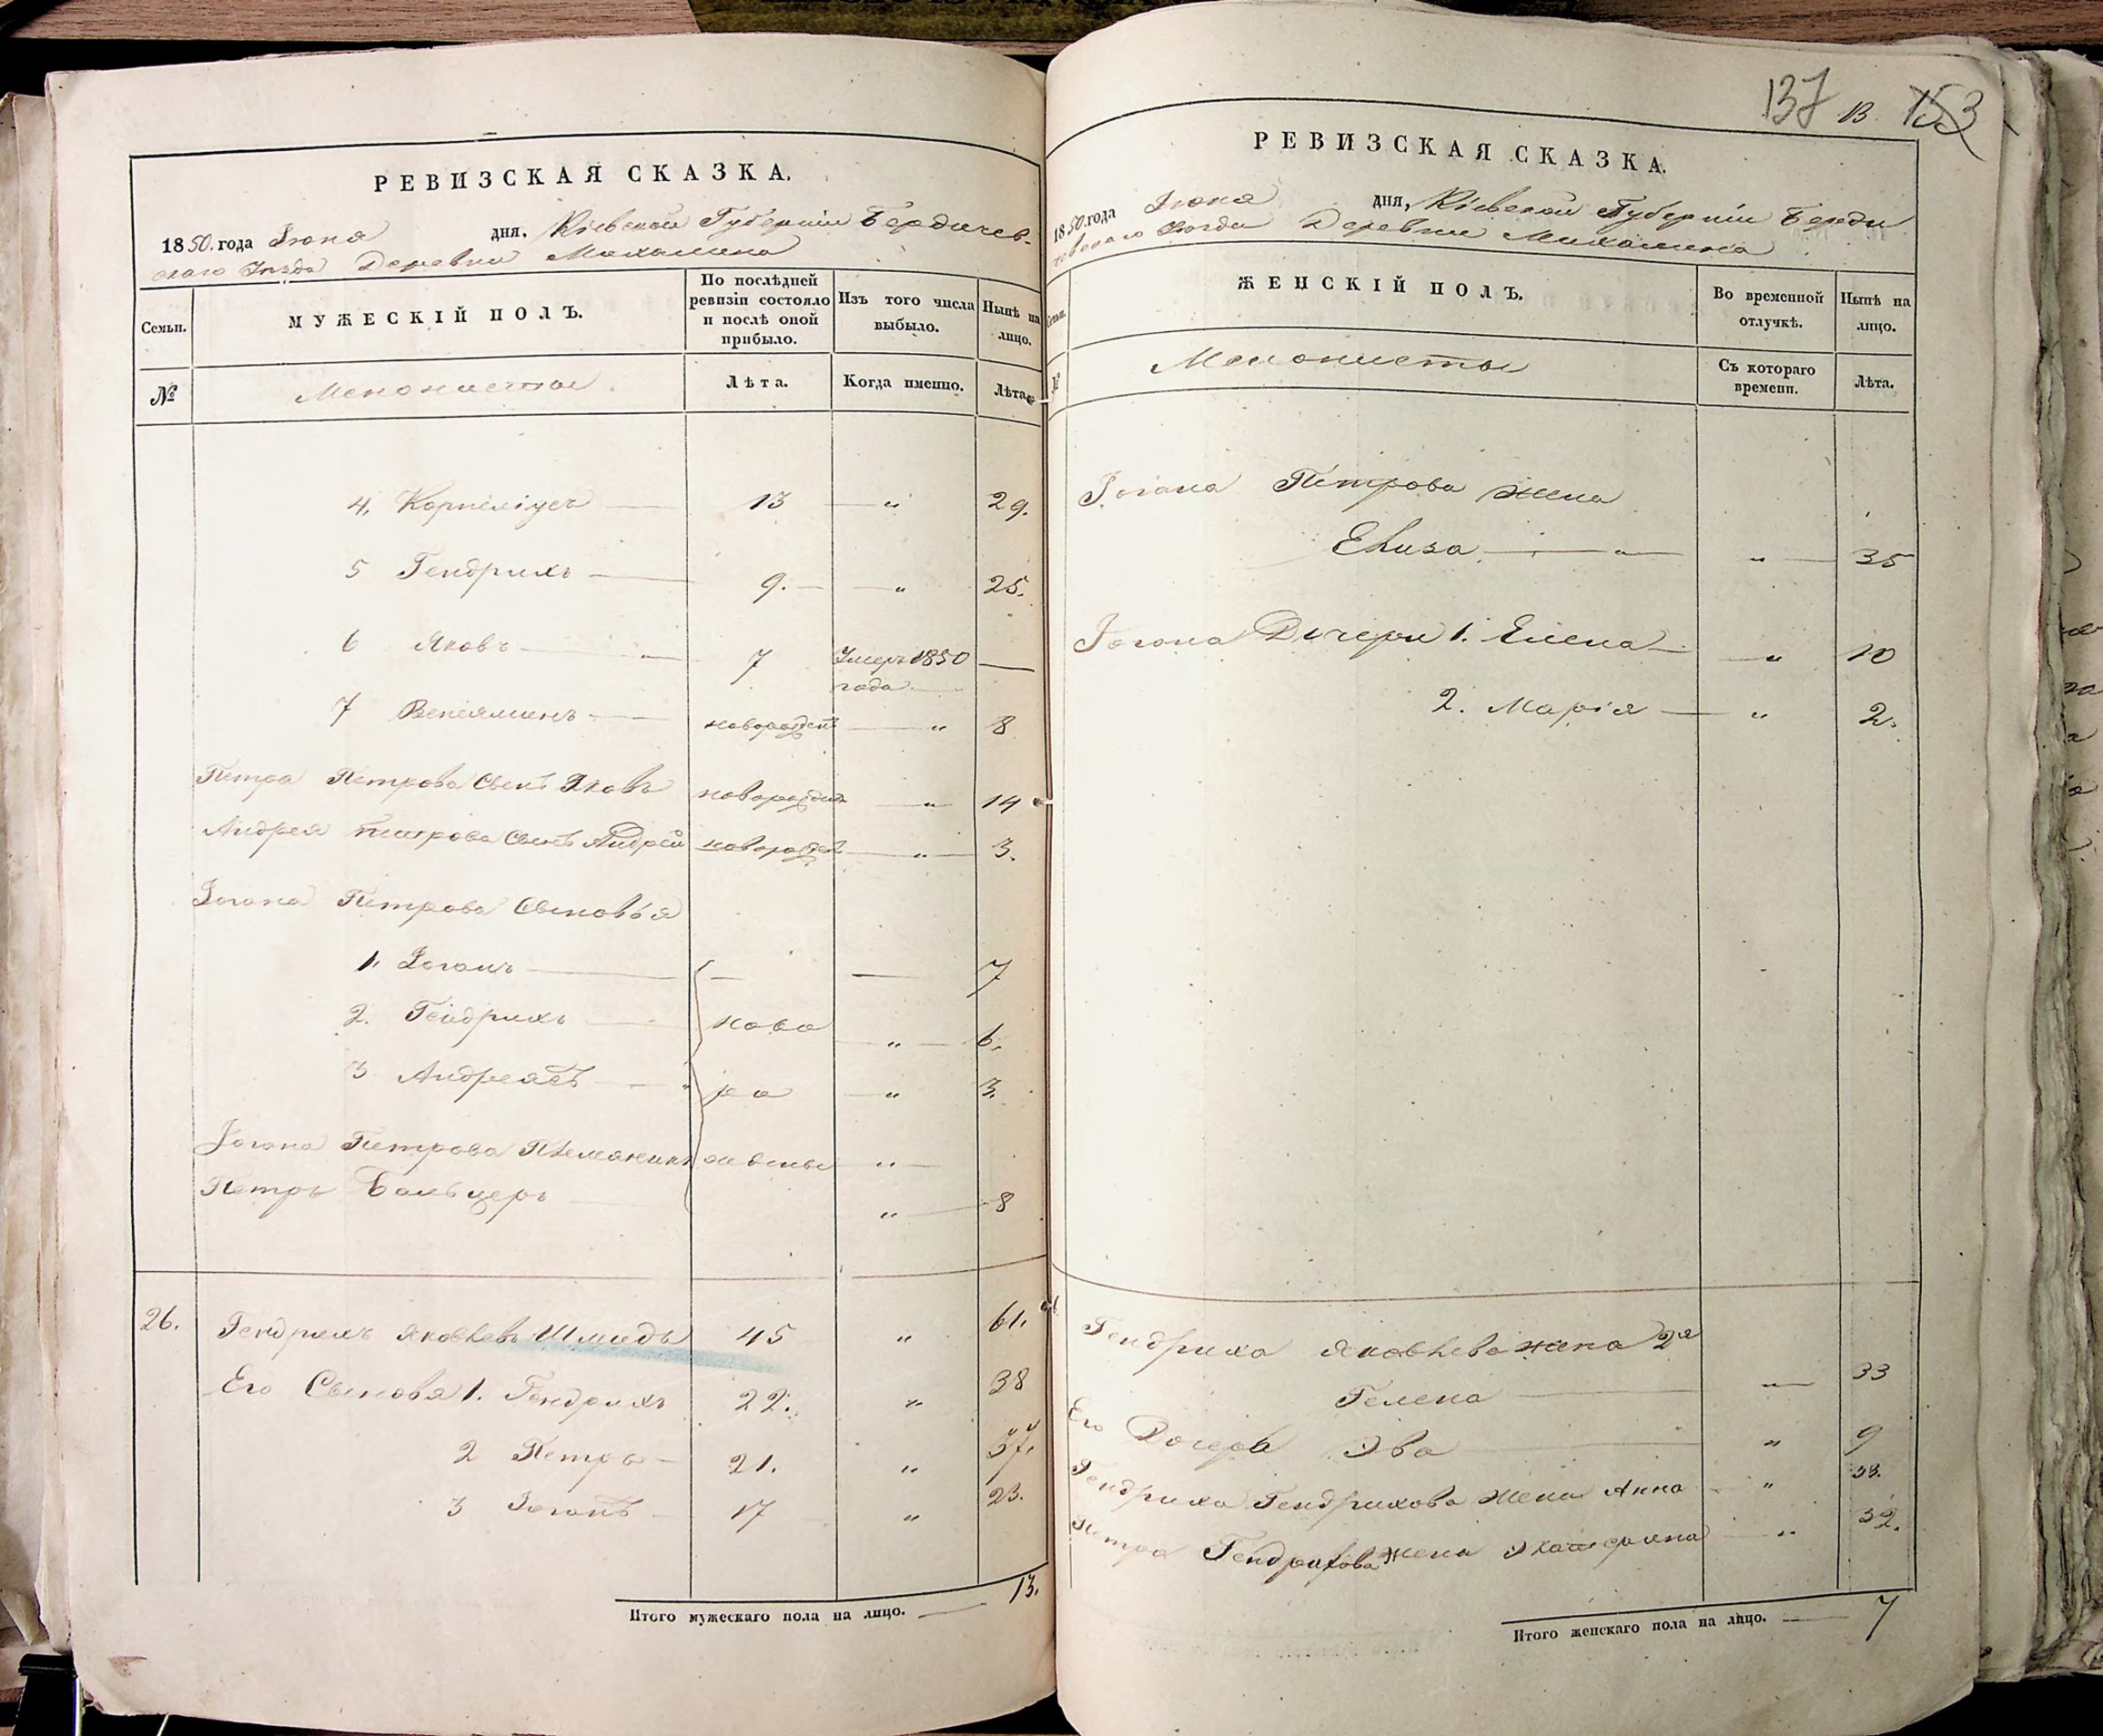 РЕВИЗСКАЯ СКАЗКА.
1850. года Iюня дня, Кiевской Губернiи Бердичев-
скаго Уѣзда Деревни Михалина
Семьи. МУЖЕСКIЙ ПОЛЪ. По послѣдней ревизiи состояло и послѣ оной прибыло. Изъ того числа выбыло. Нынѣ на лицо.
№ Менонисты Лѣта. Когда именно. Лѣта.
4. Корнелiусъ 13 — „ 29.
5 Гендрихъ — 9. — — „ 25.
6 Яковъ — „ 7 Умеръ 1850 года —
7 Венiяминъ — новорожден — „ 8
Петра Петрова Сынъ Яковъ новорожден — „ 14
Андрея Петрова Сынъ Андрей новорожден — „ — 3.
Iогана Петрова Сыновья
1. Iоганъ — — — 7
2. Гендрихъ — ново — „ — 6.
3 Андреасъ — ро — „ 3.
Iогана Петрова Племяникъ жденые „ —
Петръ Бальцеръ — „ — 8
26. Гендрихъ Яковлевъ Шмидъ 45 „ 61.
Его Сыновья 1. Гендрихъ 22. „ 38
2 Петръ — 21. „ 37.
3 Iоганъ — 17 „ 23.
13.
Итого мужескаго пола на лицо. —
137 13 153
РЕВИЗСКАЯ СКАЗКА.
1850. года Iюня дня, Кiевской Губернiи Берди
чевскаго Уѣзда Деревни Михалина
Семьи. ЖЕНСКIЙ ПОЛЪ. Во временной отлучкѣ. Нынѣ на лицо.
№ Менонисты Съ котораго времени. Лѣта.
Iогана Петрова жена
Елиза — „ — „ — 35
Iогана Дочери 1. Елена — — „ 10
2. Марiя — „ 2.
Гендриха Яковлева жена 2я
Гелена — „ — 33
Его Дочерь Эва — „ 9
Гендриха Гендрихова жена Анна — „ 33.
Петра Гендрихова жена Экатерина — „ 32.
Итого женскаго пола на лицо. — 7